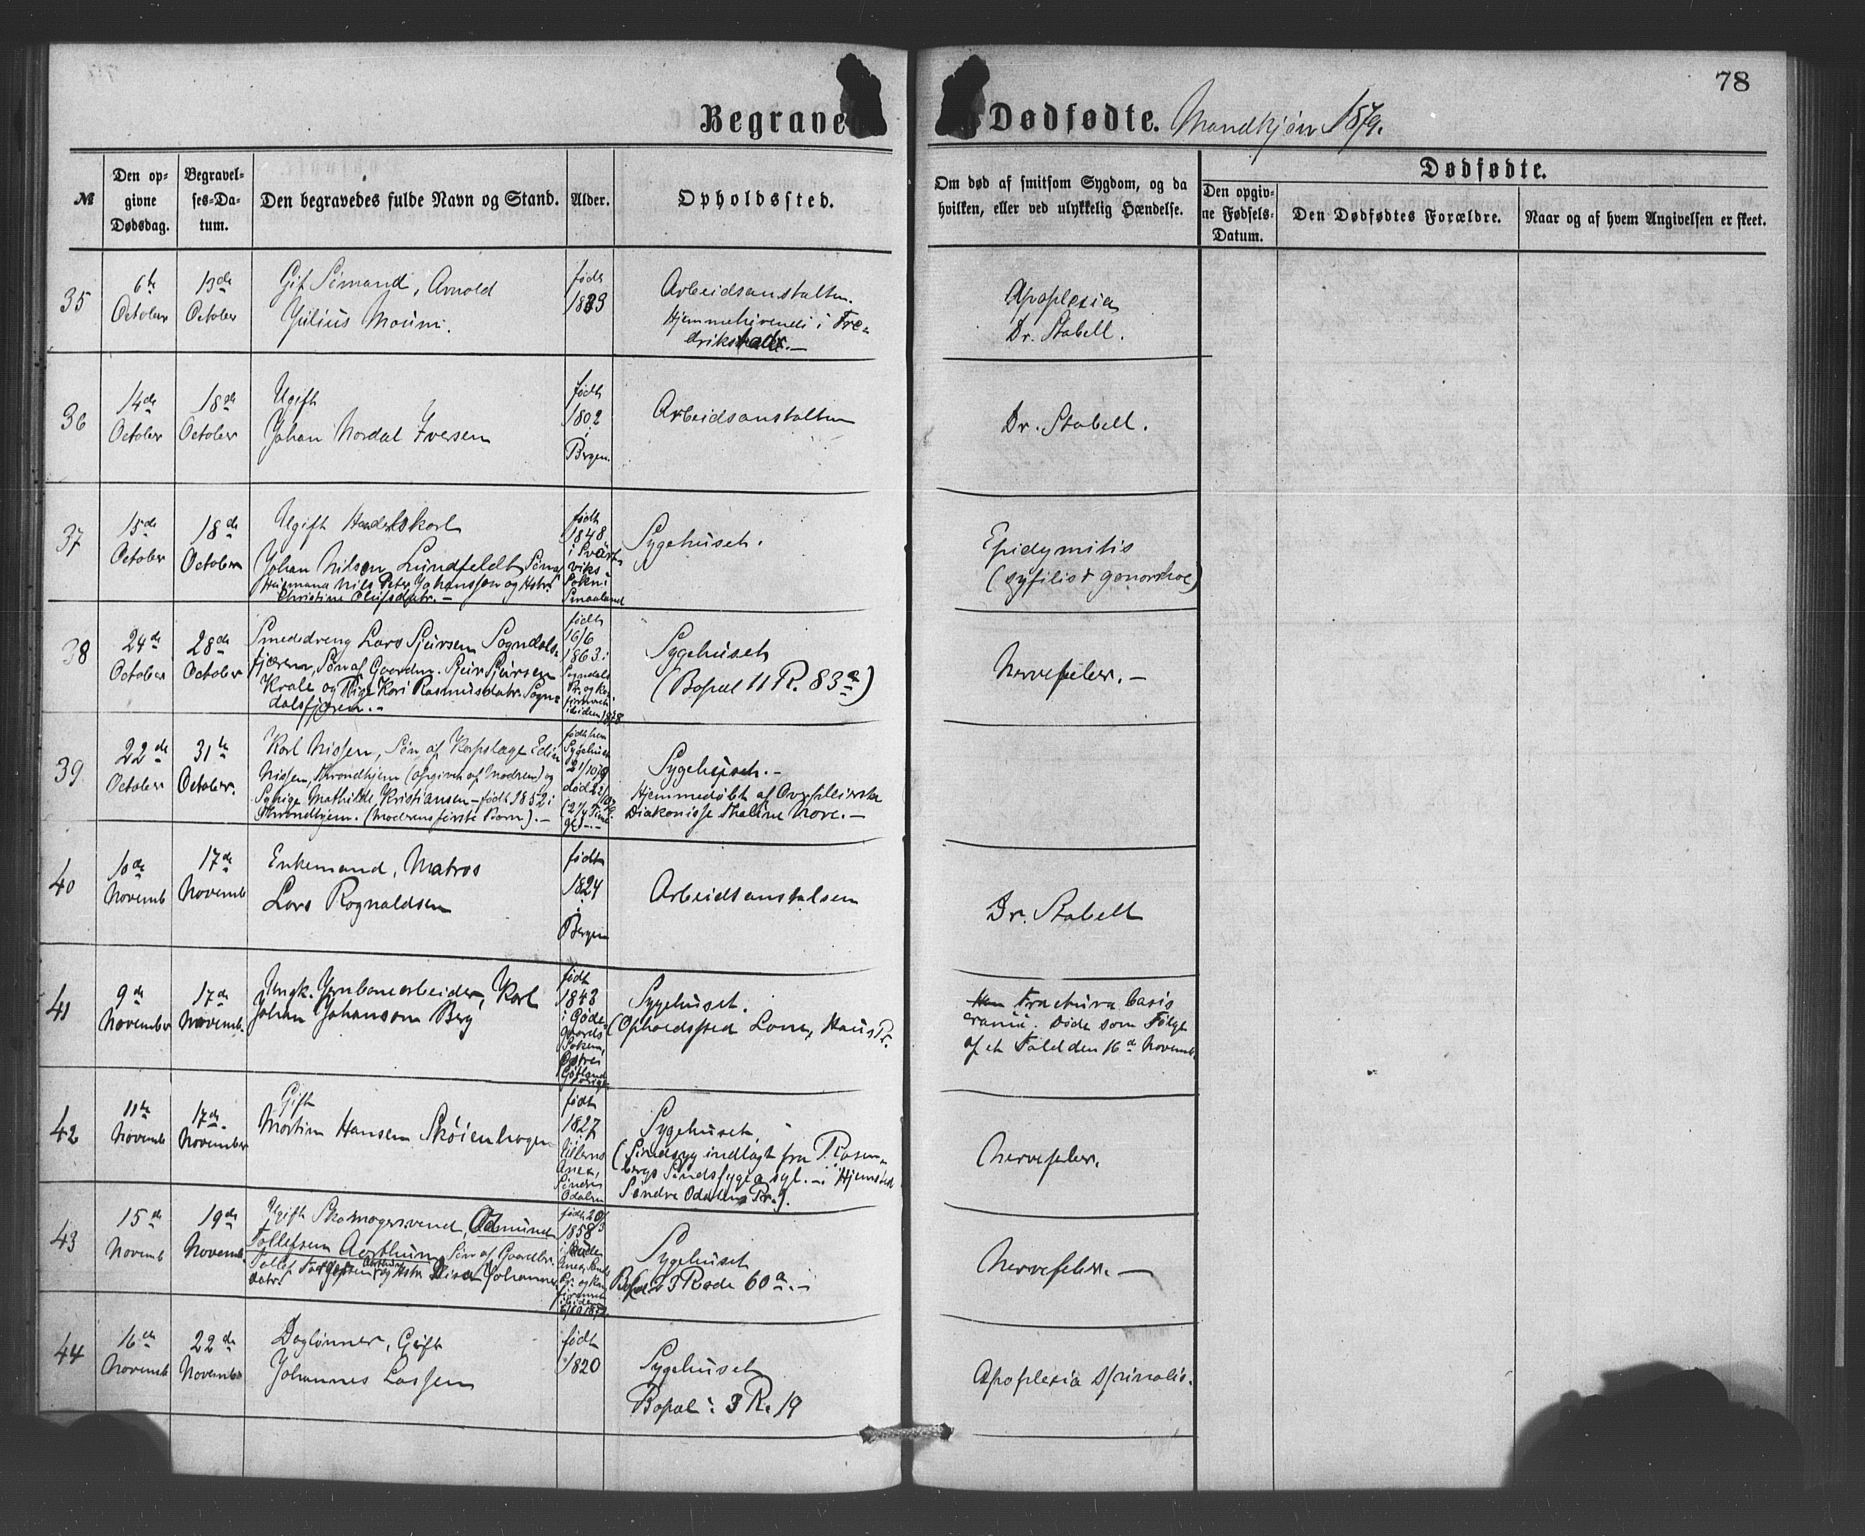 78
Begravede
Dødfødte. Mandkjøn 1879.
№
Den opgivne Dødsdag.
Begravelses-Datum.
Den begravedes fulde Navn og Stand.
Alder.
Opholdssted.
Om død af smitsom Sygdom, og da
hvilken, eller ved ulykkelig Hændelse.
Dødfødte.
Den opgivne Fødsels-Datum.
Den Dødfødtes Forældre.
Naar og af hvem Angivelsen er skeet.
35
6te October
13de October
Gift Sømand, Arnold
Julius Moum.
født
1833
Arbeidsanstalten.
Hjemmehørende i Fre-
drikshald.—
Apoplexia
Dr. Stabell.
36
14de October
18de October
Ugift
Johan Nordal Iversen
født
1802
i
Bergen.
Arbeidsanstalten
Dr. Stabell.
37
15de October
18de October
Ugift Handelskarl
Johan Nilson Lundfeldt Søn af
Nils Peter Johansson og Hstr.
Christine Olufsdatr.—
født
1848
i
Sokn i
Smaaland
Sygehuset.
Epidymitis
(syfilis & gonorrhoe)
38
24de October
28de October
Smededreng Lars Sjursen Sogndals-
fjæren, Søn af Gaardm. Sjur Sjursen
og Pige Kari Rasmusdatr. Sogn-
dalsfjæren.—
født
16/6
1863 i
Sogndals
Pr. og kon-
firmeret
1878
Sygehuset
(Bopæl 11 R. 83a)
Nervefeber.—
39
22de October
31te October.
Karl Nissen, Søn af Korpslæge
Nissen, Throndhjem (opgiven af Modren) og
Mathilde Kristiansen—født 1852 i
Throndhjem. (Moderens første Barn).—
født her
Sygehuset
21/10 79
død 22/10
Sygehuset.—
Hjemmedøbt af
Diakonisse Thaline Nore.—
40
10de Novemb
17de Novemb
Enkemand, Matros
Lars Rognaldsen
født
1824
i
Bergen
Arbeidsanstalsen
Dr. Stabell
41
9de November
17de Novemb.
Ungk. Jernbanearbeider, Karl
Johan Johanson Berg
født
1843
i Gode-
gaards
Soken,
Østre
Götland
Sverige
Sygehuset.
(Opholdssted Lone, Haus Pr.
Fractura basis
cranii. Døde som Følge
af et Fald den 16de Novemb.
42
11te Novemb
17de November
Gift
Martin Hansen Skøienhagen
født
1827
Anex,
Søndre
Odalen
Sygehuset.
(Sindssyg indlagt fra Rosen-
bergs Sindssygeasyl.— Hjemsted
Søndre Odalens Pr.).
Nervefeber.
43
15de Novemb
19de Novemb.
Ugift Skomagersvend, Odmund
Tollefsen Aarthun, Søn af Gaardbr.
Tollef Aarthun og Hstr. Johannes-
datr
født 20/3
1858
Sygehuset
Bopæl 23 Rode 60a.—
Nervefeber.—
44
16de Novemb
22de Novemb
Daglønner, Gift
Johannes Lassen
født
1820
Sygehuset
Bopæl: 3 R. 19
Apoplexia spinalis.